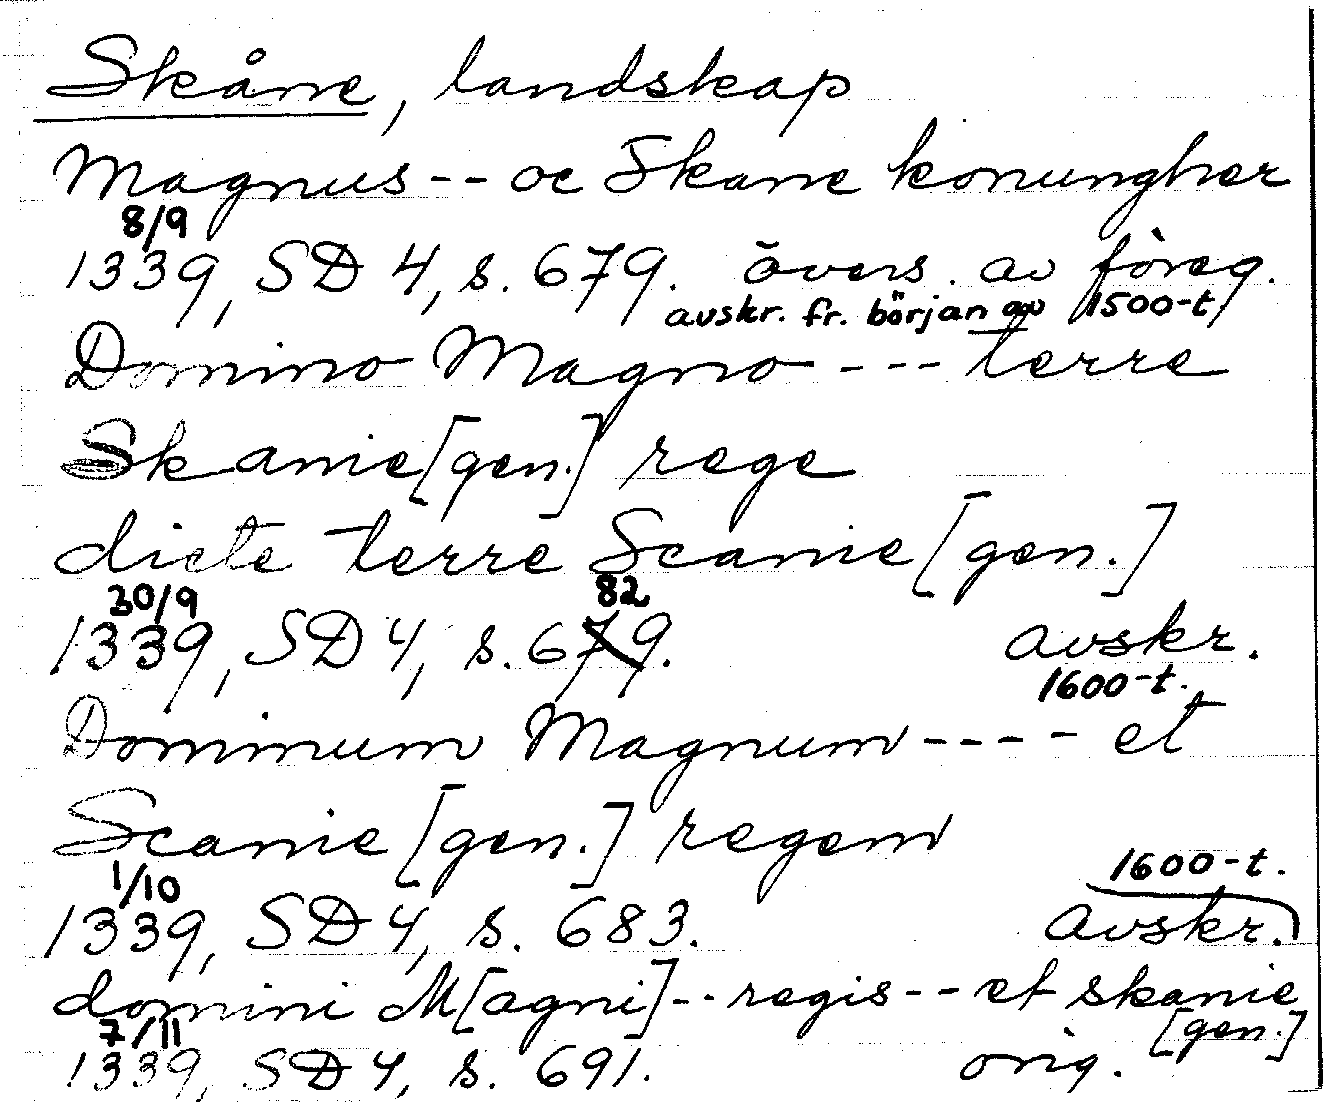 Skåne, landskap
Magnus -- oc Skane konungher
8/9
1339, SD 4, s. 679. övers. av föreg.
avskr. fr. början av 1500-t.
Domino Magno --- terre
Skanie [gen.] rege
dicte terre Scanie [gen.]
30/9 82
1339, SD 4, s. 679. avskr.
1600-t.
Dominum Magnum ---- et
Scanie [gen.] regem
1/10 1600-t.
1339, SD 4, s. 683. avskr.
domini M[agni] -- regis -- et skanie
7/11 [gen.]
1339, SD 4, s. 691. orig.